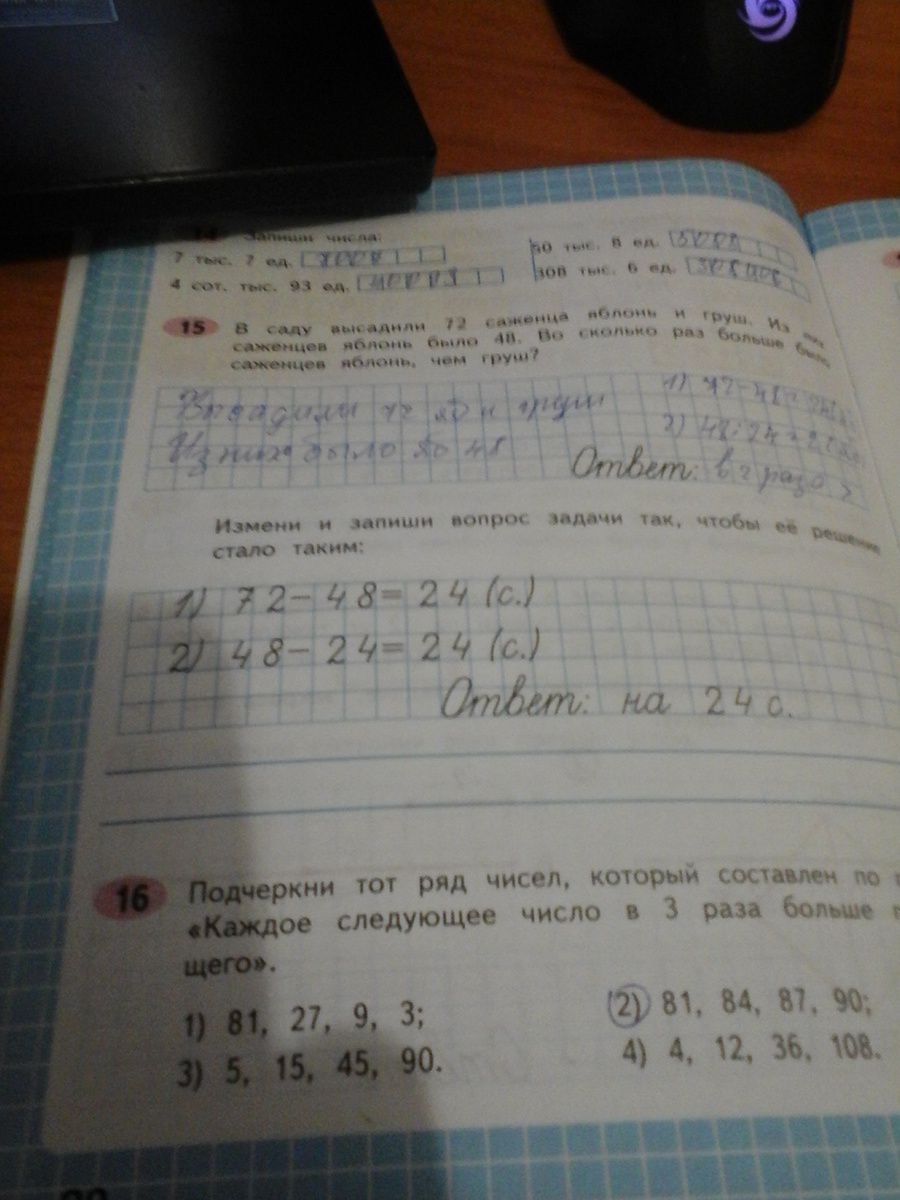 Запиши числа:
7 тыс. 7 ед.
50 тыс. 8 ед.
4 сот. тыс. 93 ед.
308 тыс. 6 ед.
15 В саду высадили 72 саженца яблонь и груш. Из них
саженцев яблонь было 48. Во сколько раз больше было
саженцев яблонь, чем груш?
Высадили 72 яб и груш
1) 72-48=24
Из них было яб 48
2) 48:24=2
Ответ: в 2 раза >
Измени и запиши вопрос задачи так, чтобы её решение
стало таким:
1) 72-48=24 (с.)
2) 48-24=24 (с.)
Ответ: на 24 с.
16 Подчеркни тот ряд чисел, который составлен по
«Каждое следующее число в 3 раза больше
щего».
1) 81, 27, 9, 3;
2) 81, 84, 87, 90;
3) 5, 15, 45, 90.
4) 4, 12, 36, 108.